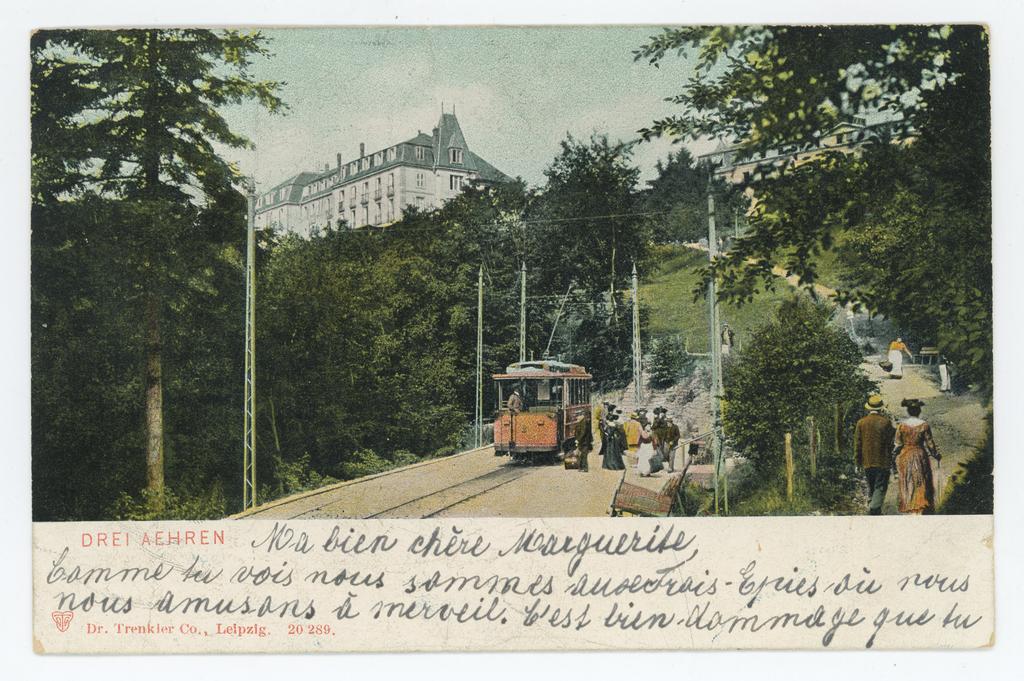 DREI AEHREN
Ma bien chère Marguerite,
Comme tu vois nous sommes aux trois-Epies où nous
nous amusons à merveil. C'est bien dommage que tu
Dr. Trenkler Co., Leipzig. 20 289.